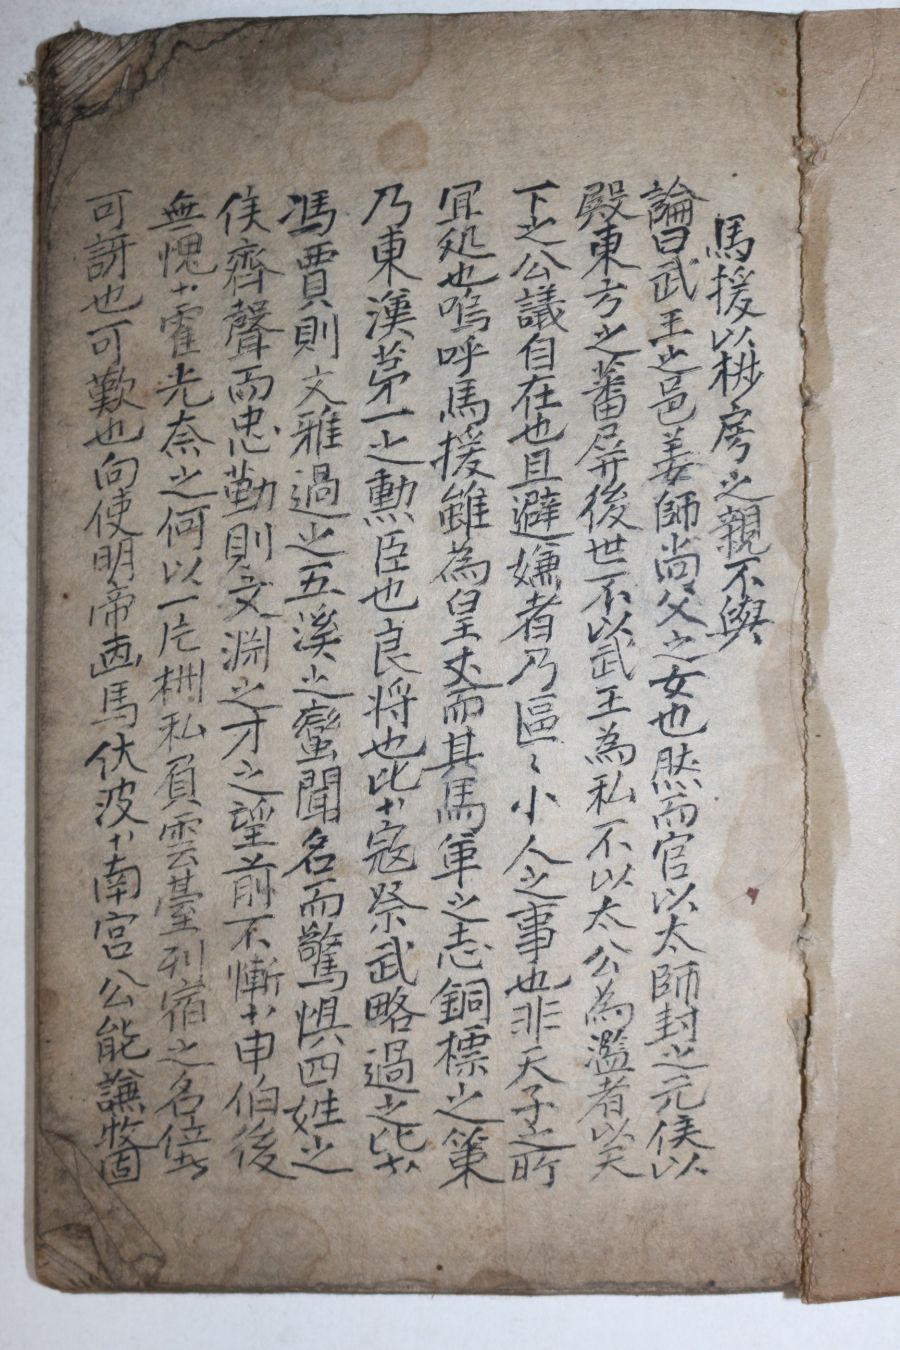 馬援以椒房之親不與
論曰武王之邑姜師尙父之女也然而官以太師封之元侯以
殿東方之蕃屛後世不以武王為私不以太公為濫者以天
下之公議自在也且避嫌者乃區〻小人之事也非天子之所
宜処也嗚呼馬援雖為皇丈而其馬革之志銅標之策
乃東漢苐一之勳臣也良将也比扵寇祭武略過之比扵
馮賈則文雅過之五溪之蠻聞名而驚惧四姓之
侯齊聲而忠勤則文淵之才之望前不慚扵申伯後
無愧扵霍光奈之何以一片柵私負雲臺列宿之名位
可訝也可歎也向使明帝画馬伏波扵南宮公能謙牧固